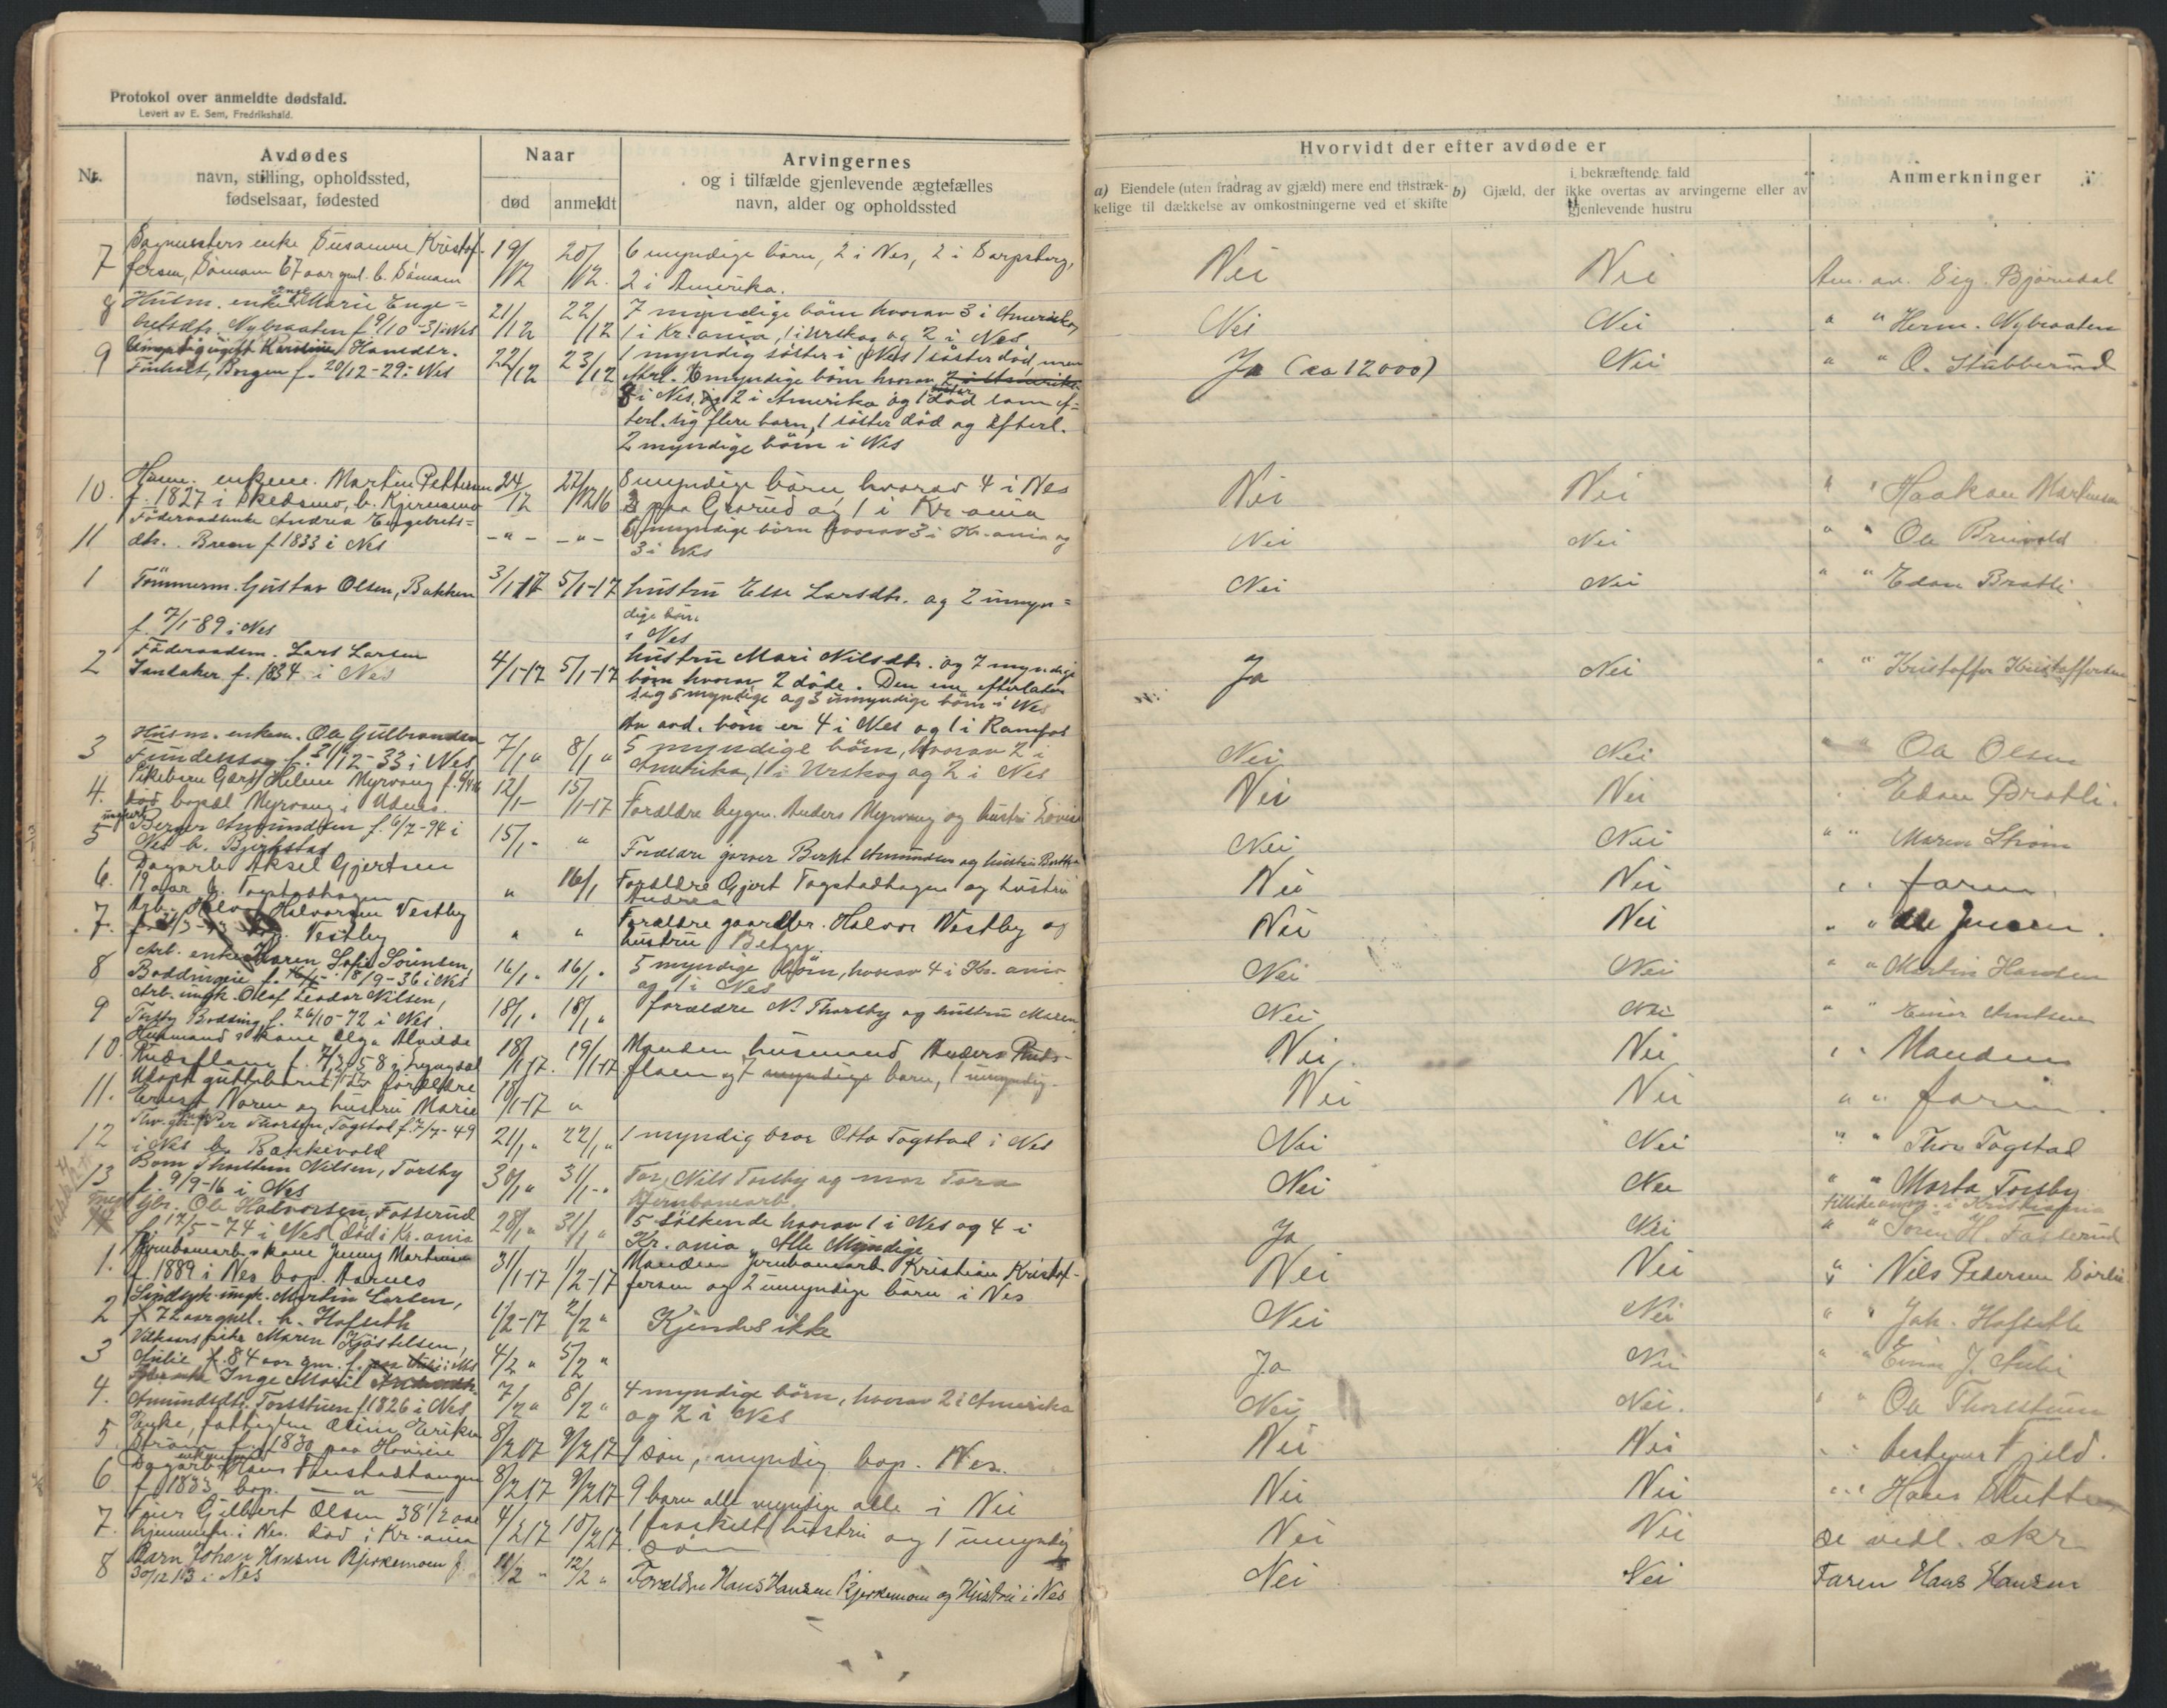 Protokol over anmeldte dødsfald.
Levert av E. Sem, Fredrikshald.
Nr.
Avdødes
navn, stilling, opholdssted,
fødselsaar, fødested
Naar
død
anmeldt
Arvingernes
og i tilfælde gjenlevende ægtefælles
navn, alder og opholdssted
Hvorvidt der efter avdøde er
a) Eiendele (uten fradrag av gjæld) mere end tilstræk-
kelige til dækkelse av omkostningerne ved et skifte
i bekræftende fald
b) Gjæld, der ikke overtas av arvingerne eller av
gjenlevende hustru
Anmerkninger
7 enke Susanne Kristof- 19/12 20/12 6 myndige børn, 2 i Nes, 2 i Sarpsborg, Nei Nei An. av. Sig. Bjørndal
fersen, 67 aar gml. b. 2 i Amerika.
8 Husm. enke Marie Enge= 21/12 22/12 7 myndige børn hvorav 3 i Amerika, Nei Nei " " Herm. Nybraaten
bretsdtr. Nybraaten f. 9/10-31 i Nes 1 i Kr.ania, 1 i Urskog og 2 i Nes.
9 Hansdtr. 22/12 23/12 1 myndig søster i Nes 1 søster død, men Ja (ca 12000) Nei " " O. Stubberud
Borgen f. 20/12-29 i Nes efterl. myndige børn hvorav 2 i Amerika
8 i Nes, og 2 i Amerika og 1 død som ef=
terl. sig flere barn, 1 søster død og efterl.
2 myndige børn i Nes
10. Husm. enkem. Martin Pettersen 24/12 27/12 16 8 myndige børn, hvorav 4 i Nes Nei Nei " " Haakon Martinsen
f. 1827 i Skedsmo, b. Kjernsmo 3 paa Grorud og 1 i Kr.ania
11 Føderaadsenke Andrea Engebrets= -"- -"- 6 myndige børn hvorav 3 i Kr.ania og Nei Nei " " Ole
dtr. Breen f 1833 i Nes 3 i Nes
1 Tømmerm. Gustav Olsen, Bakken 3/1-17 5/1-17 hustru Else Larsdtr. og 2 umyn= Nei Nei " " Edon Bratli
dige børn
f. 7/1-89 i Nes i Nes
2 Føderaadsm. Lars Larsen 4/1-17 5/1-17 hustru Mari Nilsdtr. og 7 myndige Ja Nei " " Kristoffer Kristoffersen
f. 1834 i Nes børn hvorav 2 døde. Den ene efterlater
sig 5 myndige og 3 umyndige børn i Nes
Av avd. børn er 4 i Nes og 1 i Ramfos
3 Husm. enkem. Ole Gulbrandsen 7/1 " 8/1 " 5 myndige børn, hvorav 2 i Nei Nei " " Ole Olsen
f. 31/12-33 i Nes Amerika, 1 i Urskog og 2 i Nes
4. Pikebarn Helene Myrvang 12/1- 15/1-17 Forældre bygm. Anders Myrvang og hustru Nei Nei Edon Bratli.
død bopæl Myrvang i Udnes.
5 ungkarl Berger Amundsen f. 6/7-94 i 15/1- " Forældre garver Amundsen og hustru Nei Nei " " Maren Strøm
Nes b. Bjerkstad
6. Dagarb. Aksel Gjertsen " 16/1 Forældre Gjert Togstadhagen og hustru Nei Nei " " faren.
19 aar b. Togstadhagen Andrea
7. Arb. Halvorsen Vestby " " Forældre gaardbr. Halvor Westby og Nei Nei " " Ole Jensen.
Vestby hustru Betzy.
8 Arb. enke Karen Sofie Sørensen, 16/1 - 16/1 - 5 myndige børn, hvorav 4 i Kr.ania Nei Nei " " Martin Hansen
18/9-36 i Nes og 1 i Nes
9 Arb. ungk. Olaf Teodor Nilsen, 18/1 " 18/1 " forældre N. Thorsby og hustru Maren Nei Nei " "
Torsby Brodding f. 26/10-72 i Nes.
10. Husmands kone Olga Alvilde 18/1-17. 19/1-17 Manden husmand Anders Ruds- Nei Nei " " Manden
Rudsflaen f. flaen og 7 myndige barn, 1 umyndig.
11. Udøpt guttebarn forældre 18/1-17 " Nei Nei " " faren.
Ernst Noren og hustru Marie
12 Per Thorsen, Togstad f. 7/7-49 21/1 " 22/1 " 1 myndig bror Otto Togstad i Nes Nei Nei " " Thor Togstad
i Nes b. Bakkevold
13 Barn Thorstein Nilsen, Torsby 30/1 " 31/1-" Far, Nils Torsby og mor Tora Nei Nei " " Marta Torsby
f. 9/9-16 i Nes Jernbanearb.
Gbr. Ole Halvorsen, Fosserud 28/1 " 31/1 " 5 søskende hvorav 1 i Nes og 4 i Ja Nei " " Søren H. Fosserud
f. 17/5-74 i Nes (død i Kr.ania Kr.ania. Alle Myndige
1. Jernbanearb.s kone Jenny Martinsen 31/1-17 1/2-17 Manden Jernbanearb Kristian Kristof- Nei Nei " Nils Pedersen Sørlie
f. 1889 i Nes bop. Aarnes fersen og 2 umyndige barn i Nes
2 ungk. Martin Larsen, 1/2-17 2/2 " Kjendes ikke Nei Nei " " Joh. Hofseth
72 aar gml. b. Hofseth
3 Vilkaarspike Maren Kjøstelsen, 4/2 " 5/2 " Ja Nei " " Einar J. Aulie
Aulie 84 aar gm. f. i Nes
4. Inge Marie 7/2 " 8/2 " 4 myndige børn, hvorav 2 i Amerika Nei Nei. " " Ole Thorstuen
Amundsdtr. Torsstuen f 1826 i Nes og 2 i Nes
5. Enke, fattiglem Oline Eriksen 8/2 17 9/2 17 1 søn, myndig bop. Nes. Nei Nei " " bestyrer Fjeld.
f. 1830 paa
6. Dagarb. enkemand Hans 8/2 17 9/2 17 9 barn alle myndige alle i Nes Nei Nei " " Hans
f 1833 bop. — " —
7. Gilbert Olsen 38 1/2 aar 4/2 17 10/2 17. 1 fraskilt hustru og 1 umyndig Nei Nei se vedl. skr
hjemmeh. i Nes. død i Kr.ania søn
8 Barn Johan Hansen Bjerkemoen f. 11/2 " 12/2 " Forældre Hans Hansen Bjerkemoen og Hustru i Nes Nei Nei Faren Hans Hansen
30/12 13 i Nes